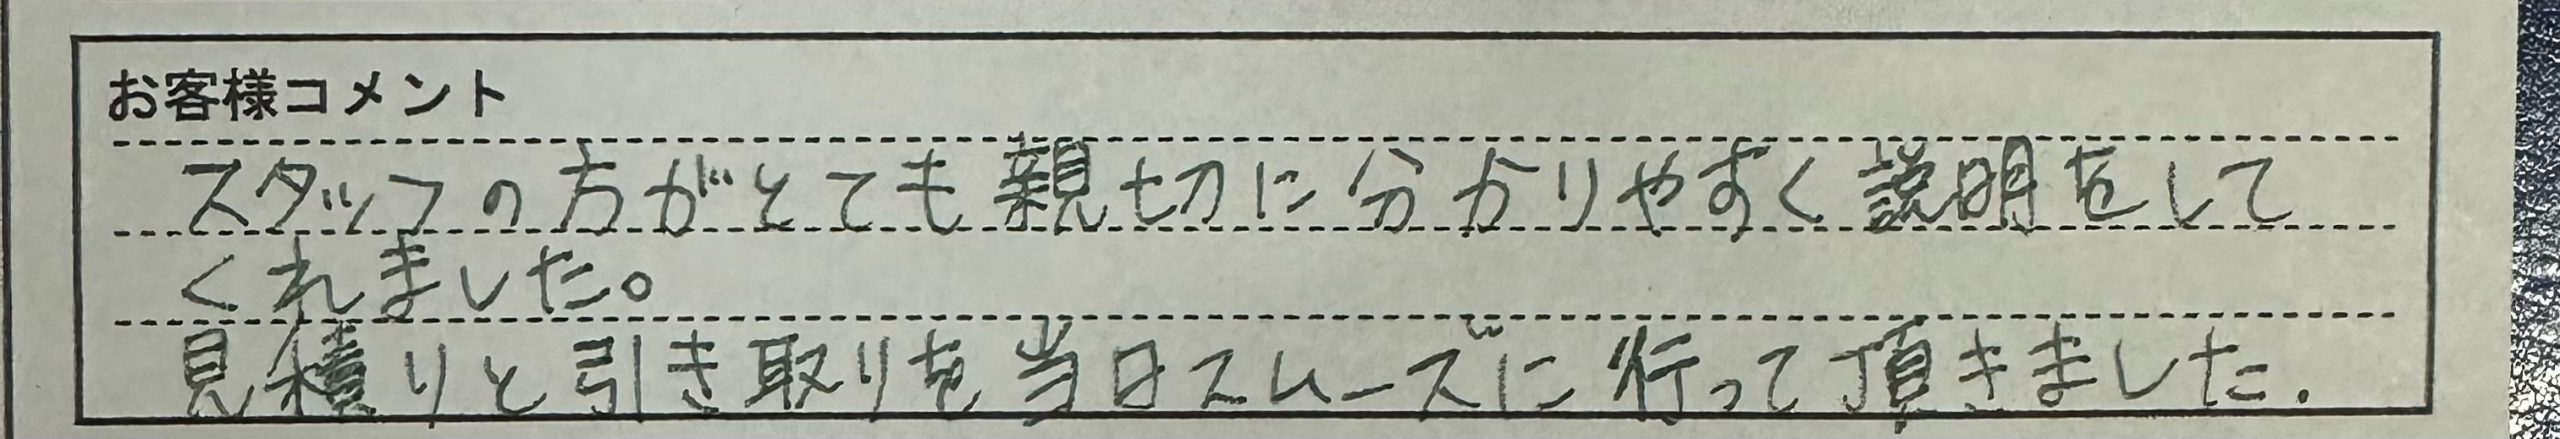 お客様コメント
スタッフの方がとても親切に分かりやすく説明をして
くれました。
見積りと引き取りを当日スムーズに行って頂きました.